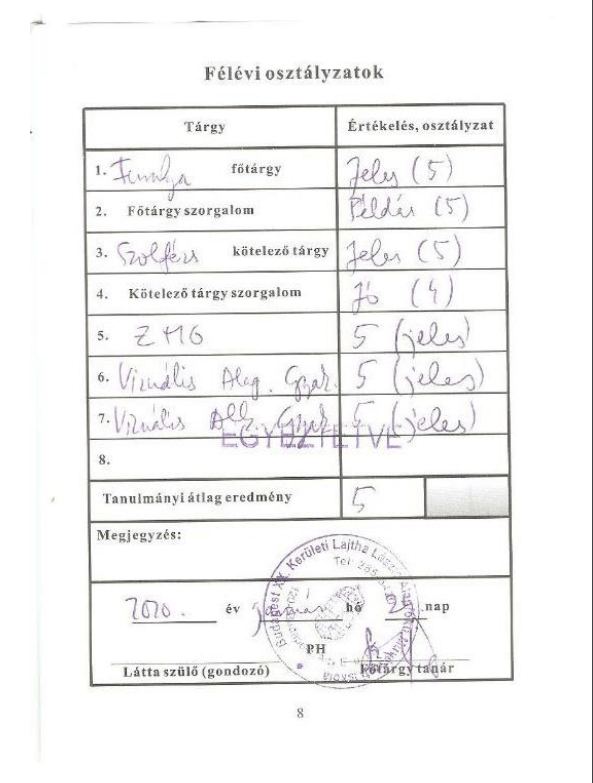 Félévi osztályzatok
Tárgy Értékelés, osztályzat
1. főtárgy Jeles (5)
2. Főtárgy szorgalom Példás (5)
3. Szolfézs kötelező tárgy Jeles (5)
4. Kötelező tárgy szorgalom Jó (4)
5. 5 (jeles)
6. Vizuális Alap. Gyak. 5 (jeles)
7. Vizuális Alk. Gyak. 5 (jeles)
EGYEZTETVE
8.
Tanulmányi átlag eredmény 5
Megjegyzés:
Budapest XX. Kerületi Lajtha László
Tel:
2020. év január hó nap
PH
Látta szülő (gondozó) Főtárgy tanár
8